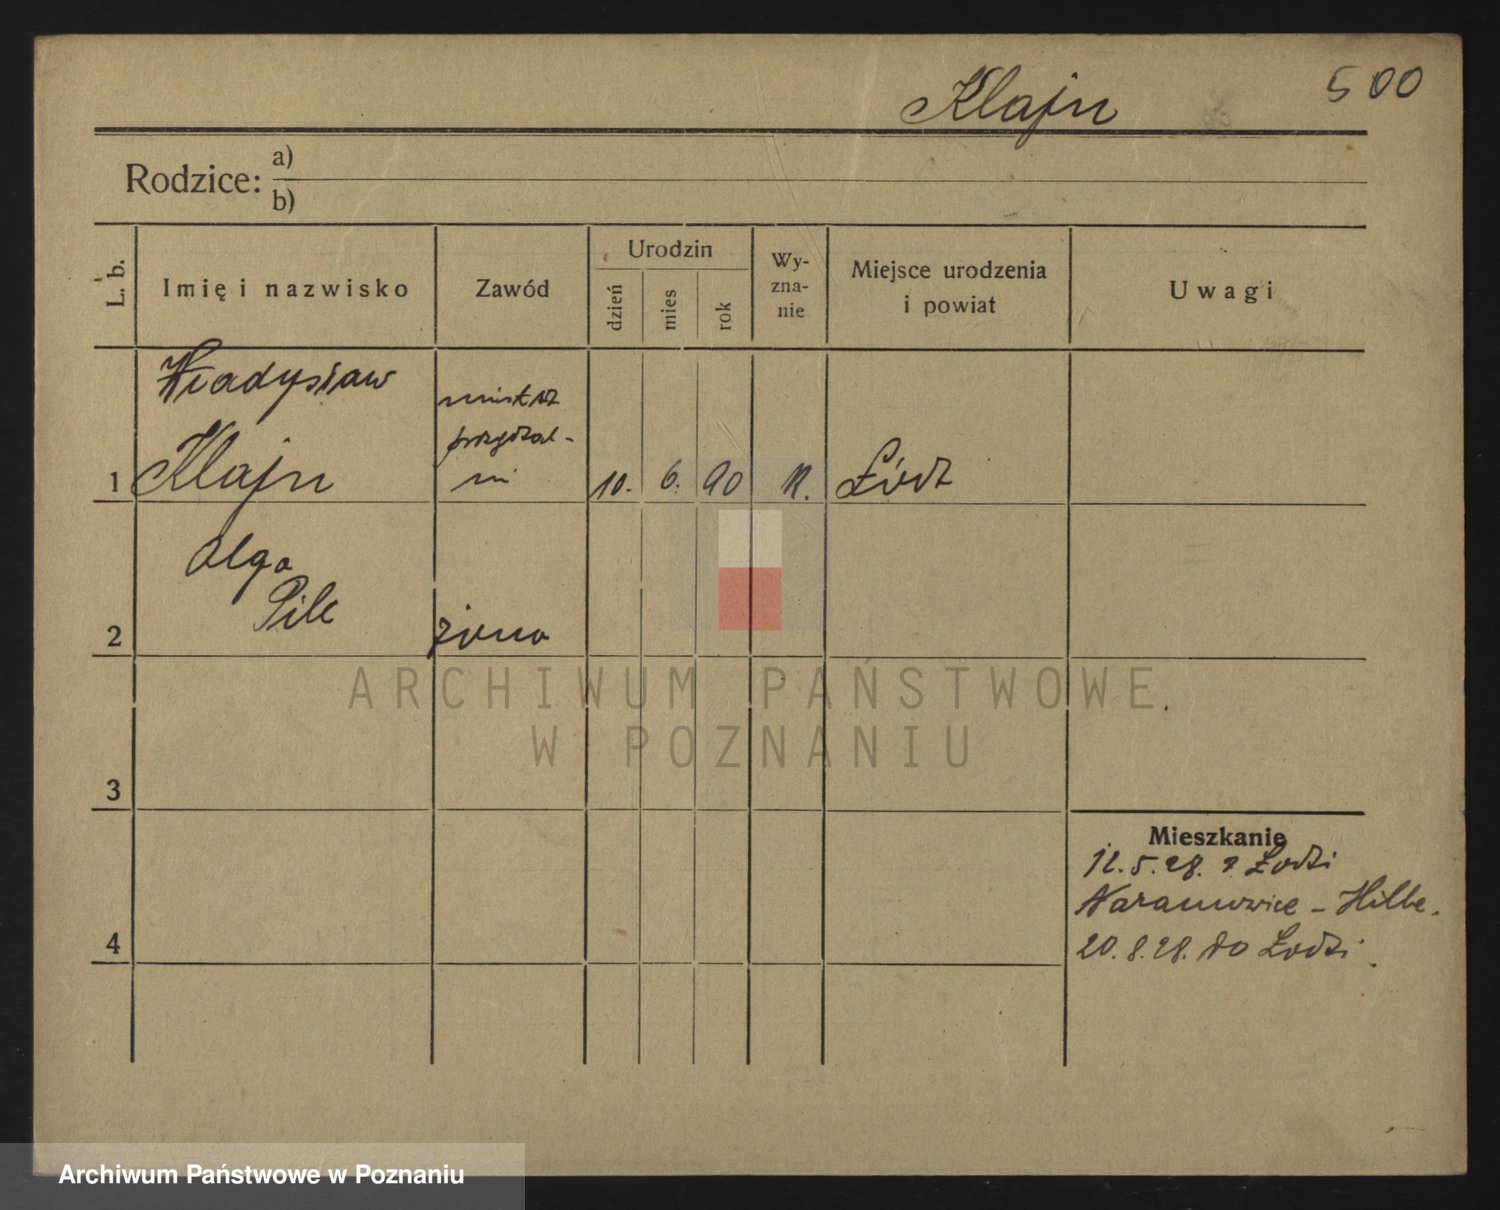 Klajn 500
Rodzice: a)
b)
L. b. Imię i nazwisko Zawód Urodzin dzień mies rok Wy-zna-nie Miejsce urodzenia i powiat Uwagi
Władysław
Klajn
1 10. 6. 90 Łódź
Olga
Pilc
2 żona
ARCHIWUM PAŃSTWOWE
W POZNANIU
3
Mieszkanie
12.5.28. z Łodzi
Naramowice - Hilbe.
20.8.28. do Łodzi.
4
Archiwum Państwowe w Poznaniu